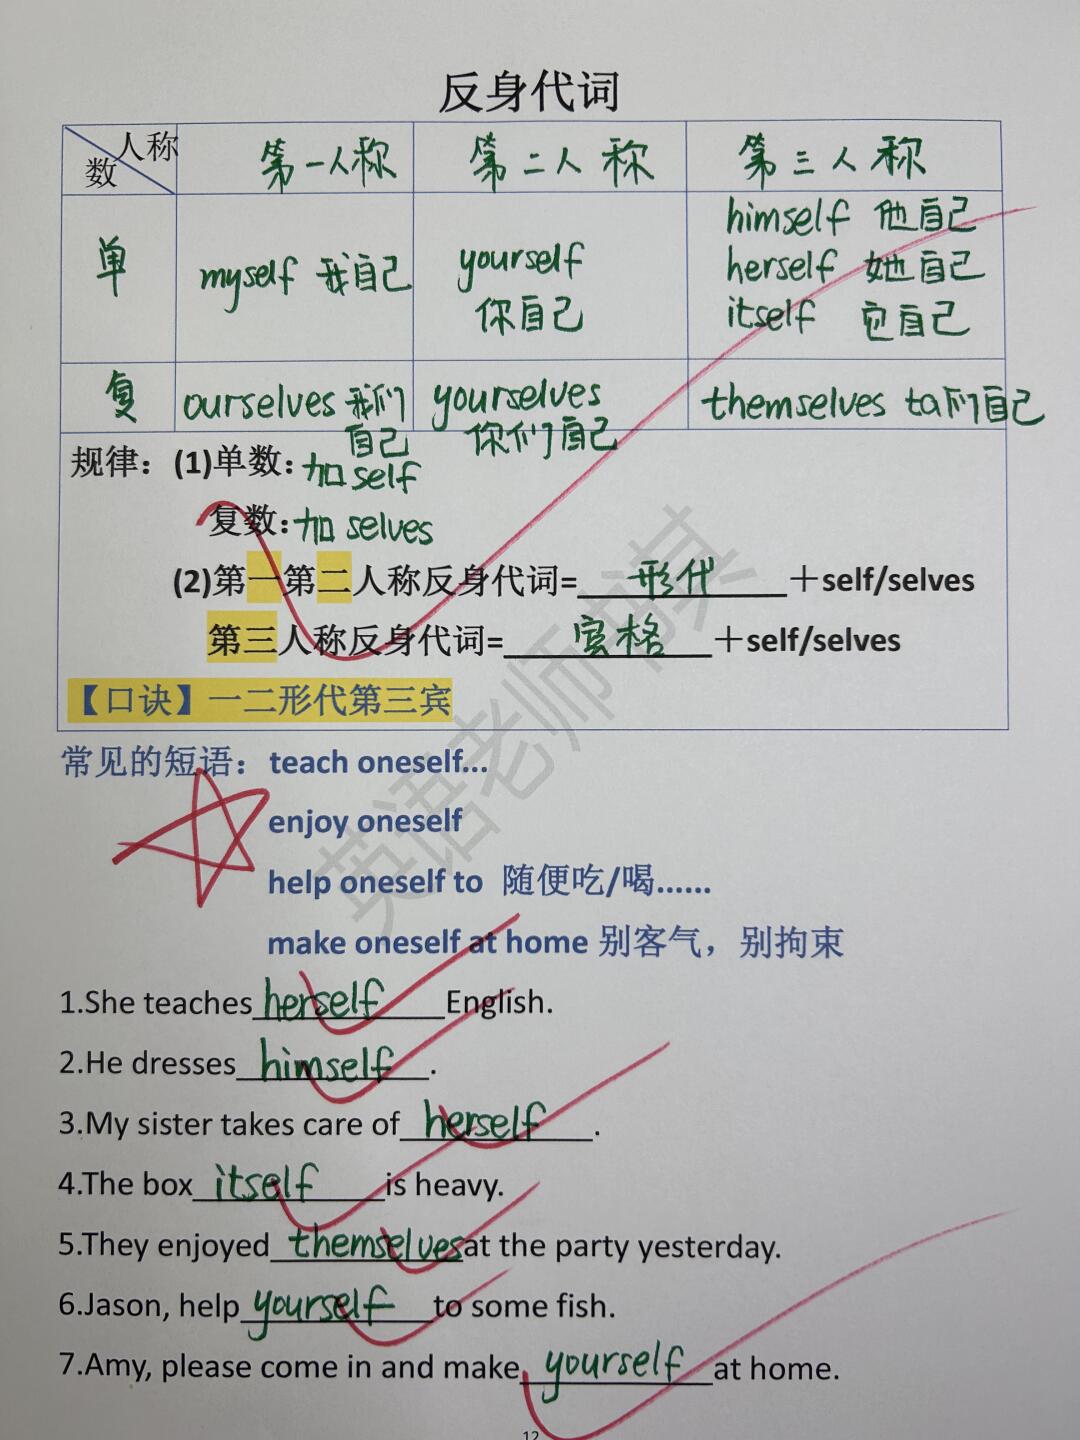 反身代词
人称 第一人称 第二人称 第三人称
数
himself 他自己
单 myself 我自己 yourself herself 她自己
你自己 itself 它自己
复 ourselves 我们 yourselves themselves ta们自己
自己 你们自己
规律：(1)单数：加self
复数：加 selves
(2)第一第二人称反身代词=形代＋self/selves
第三人称反身代词=宾格＋self/selves
【口诀】一二形代第三宾
常见的短语：teach oneself...
enjoy oneself
help oneself to 随便吃/喝......
make oneself at home 别客气，别拘束
1.She teaches herself English.
2.He dresses himself.
3.My sister takes care of herself.
4.The box itself is heavy.
5.They enjoyed themselves at the party yesterday.
6.Jason, help yourself to some fish.
7.Amy, please come in and make yourself at home.
12